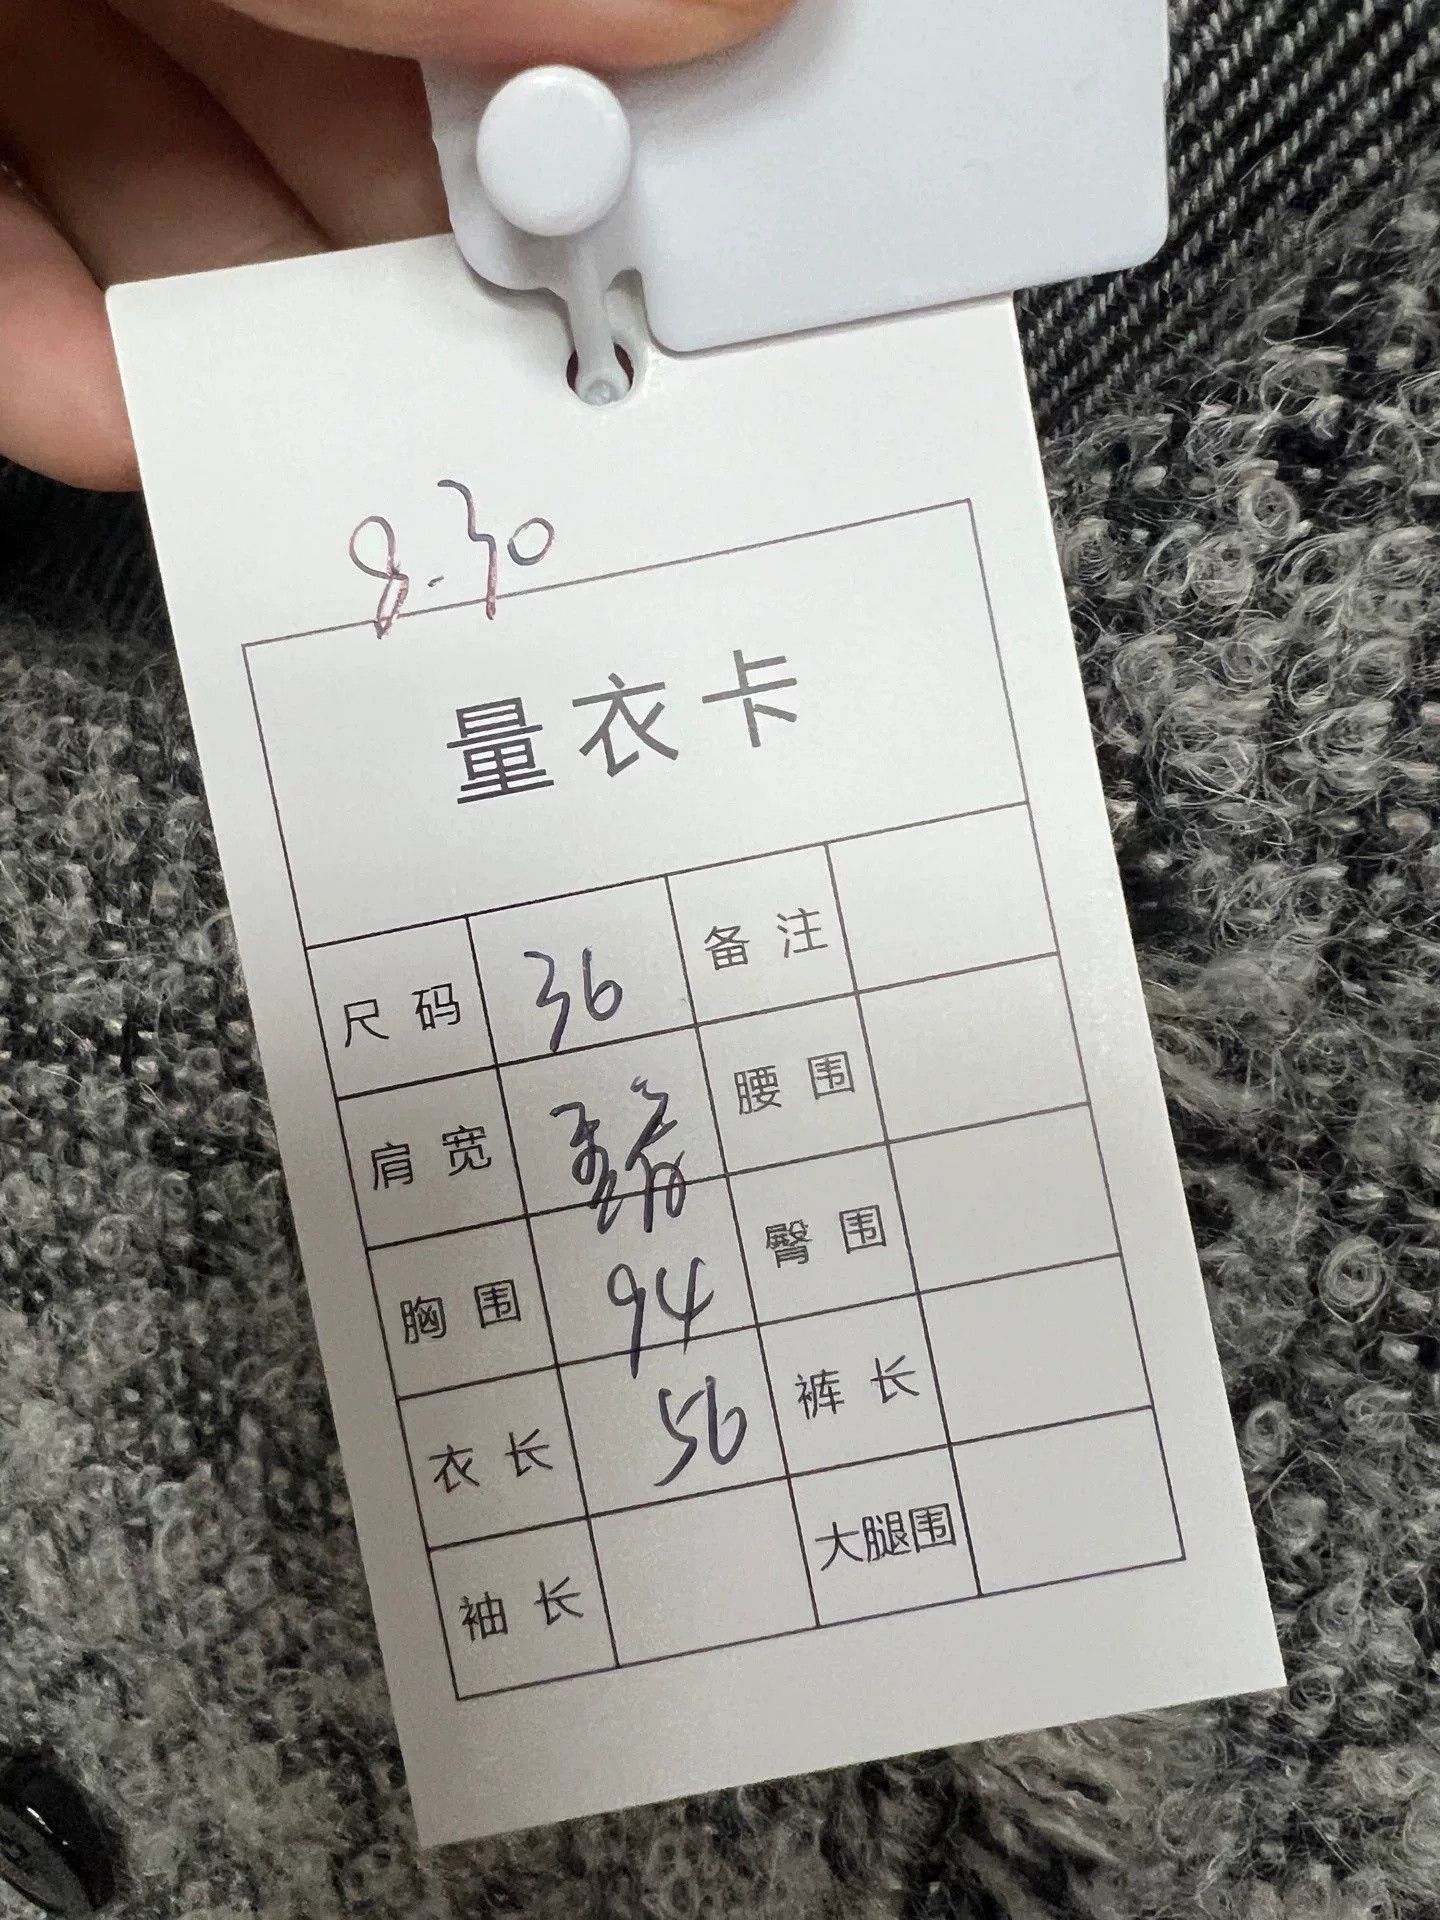 9.30
量衣卡
尺码 36 备注
肩宽 腰围
胸围 94 臀围
衣长 56 裤长
袖长 大腿围